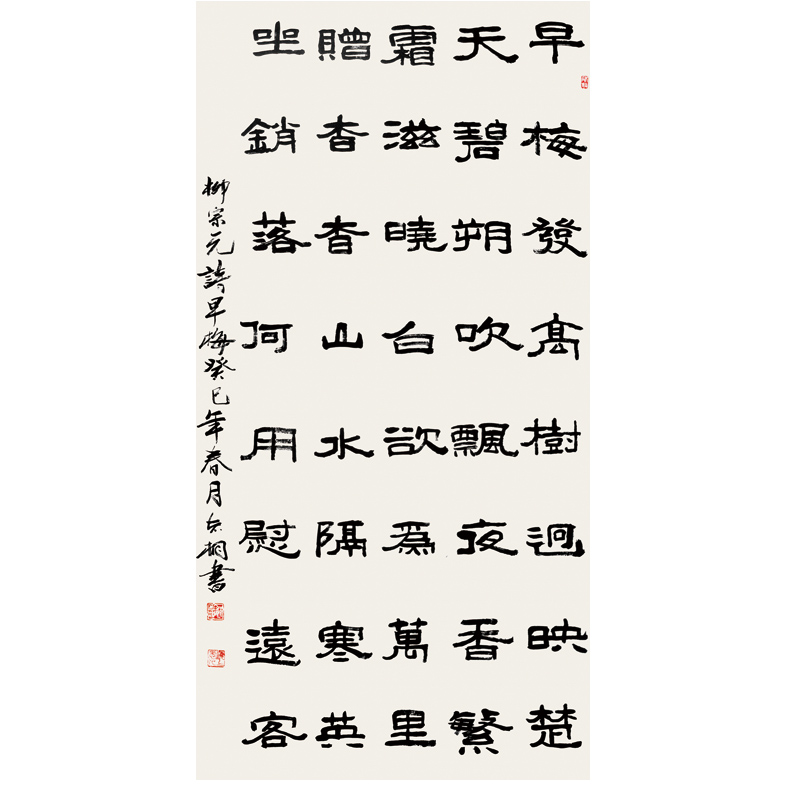 早梅發高樹迥映楚
天碧朔吹飄夜香繁
霜滋曉白欲為萬里
贈杳杳山水隔寒英
坐銷落何用慰遠客
柳宗元詩早梅癸巳年春月桐書